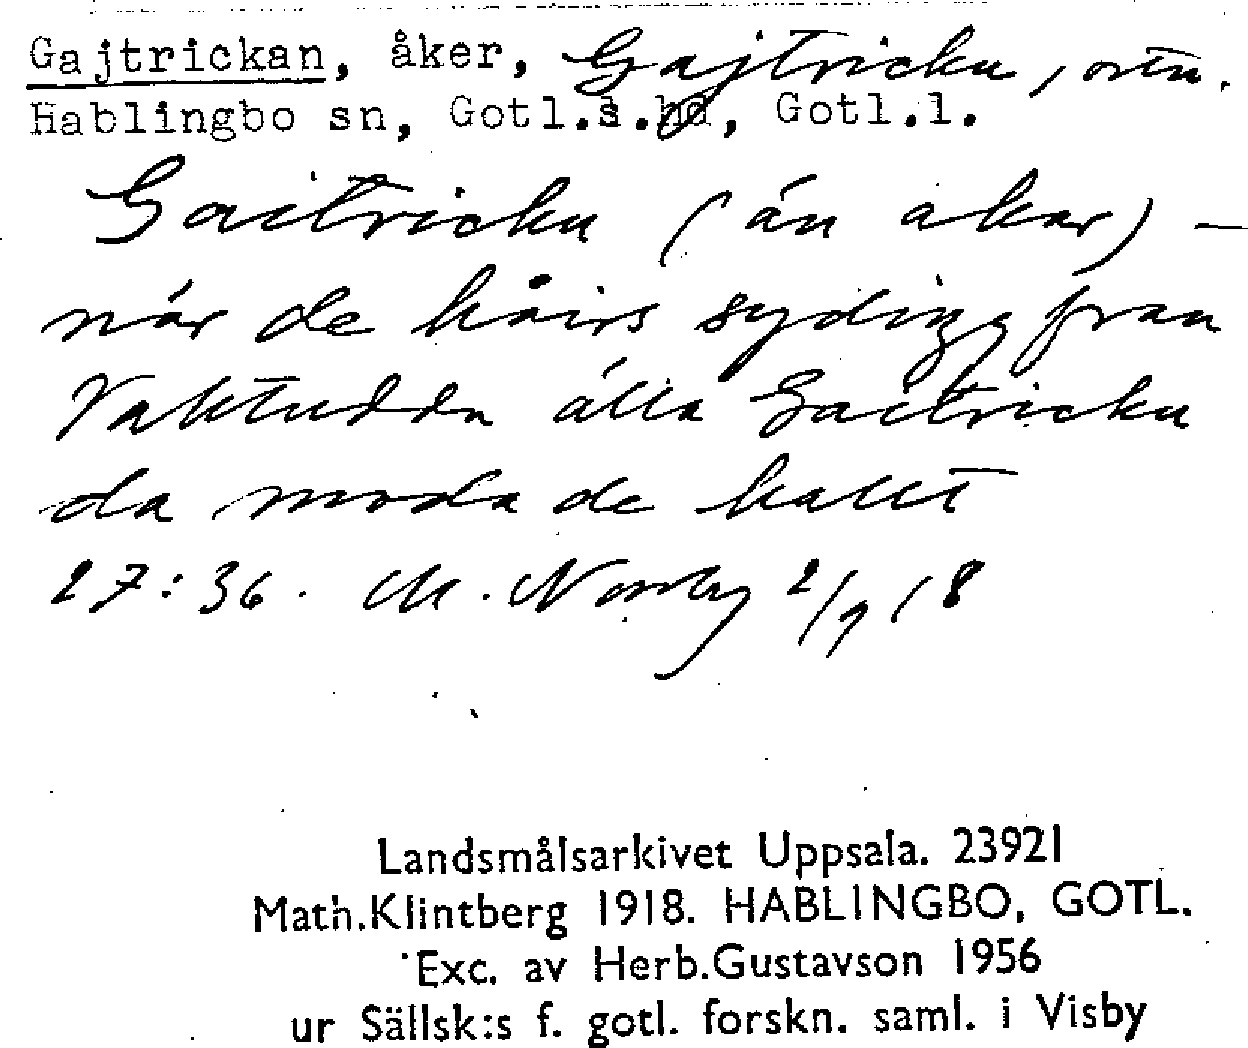 Gajtrickan, åker, Gajtricku, ortn.
Hablingbo sn, Gotl.s.hd, Gotl.l.
Gaitricku (än akar) –
når de håirs syding fran
Vaktudda álla Gaitricku
da moda de kallt
27:36. M. Norrby 2/9 18
Landsmålsarkivet Uppsala. 23921
Math.Klintberg 1918. HABLINGBO, GOTL.
Exc. av Herb.Gustavson 1956
ur Sällsk:s f. gotl. forskn. saml. i Visby